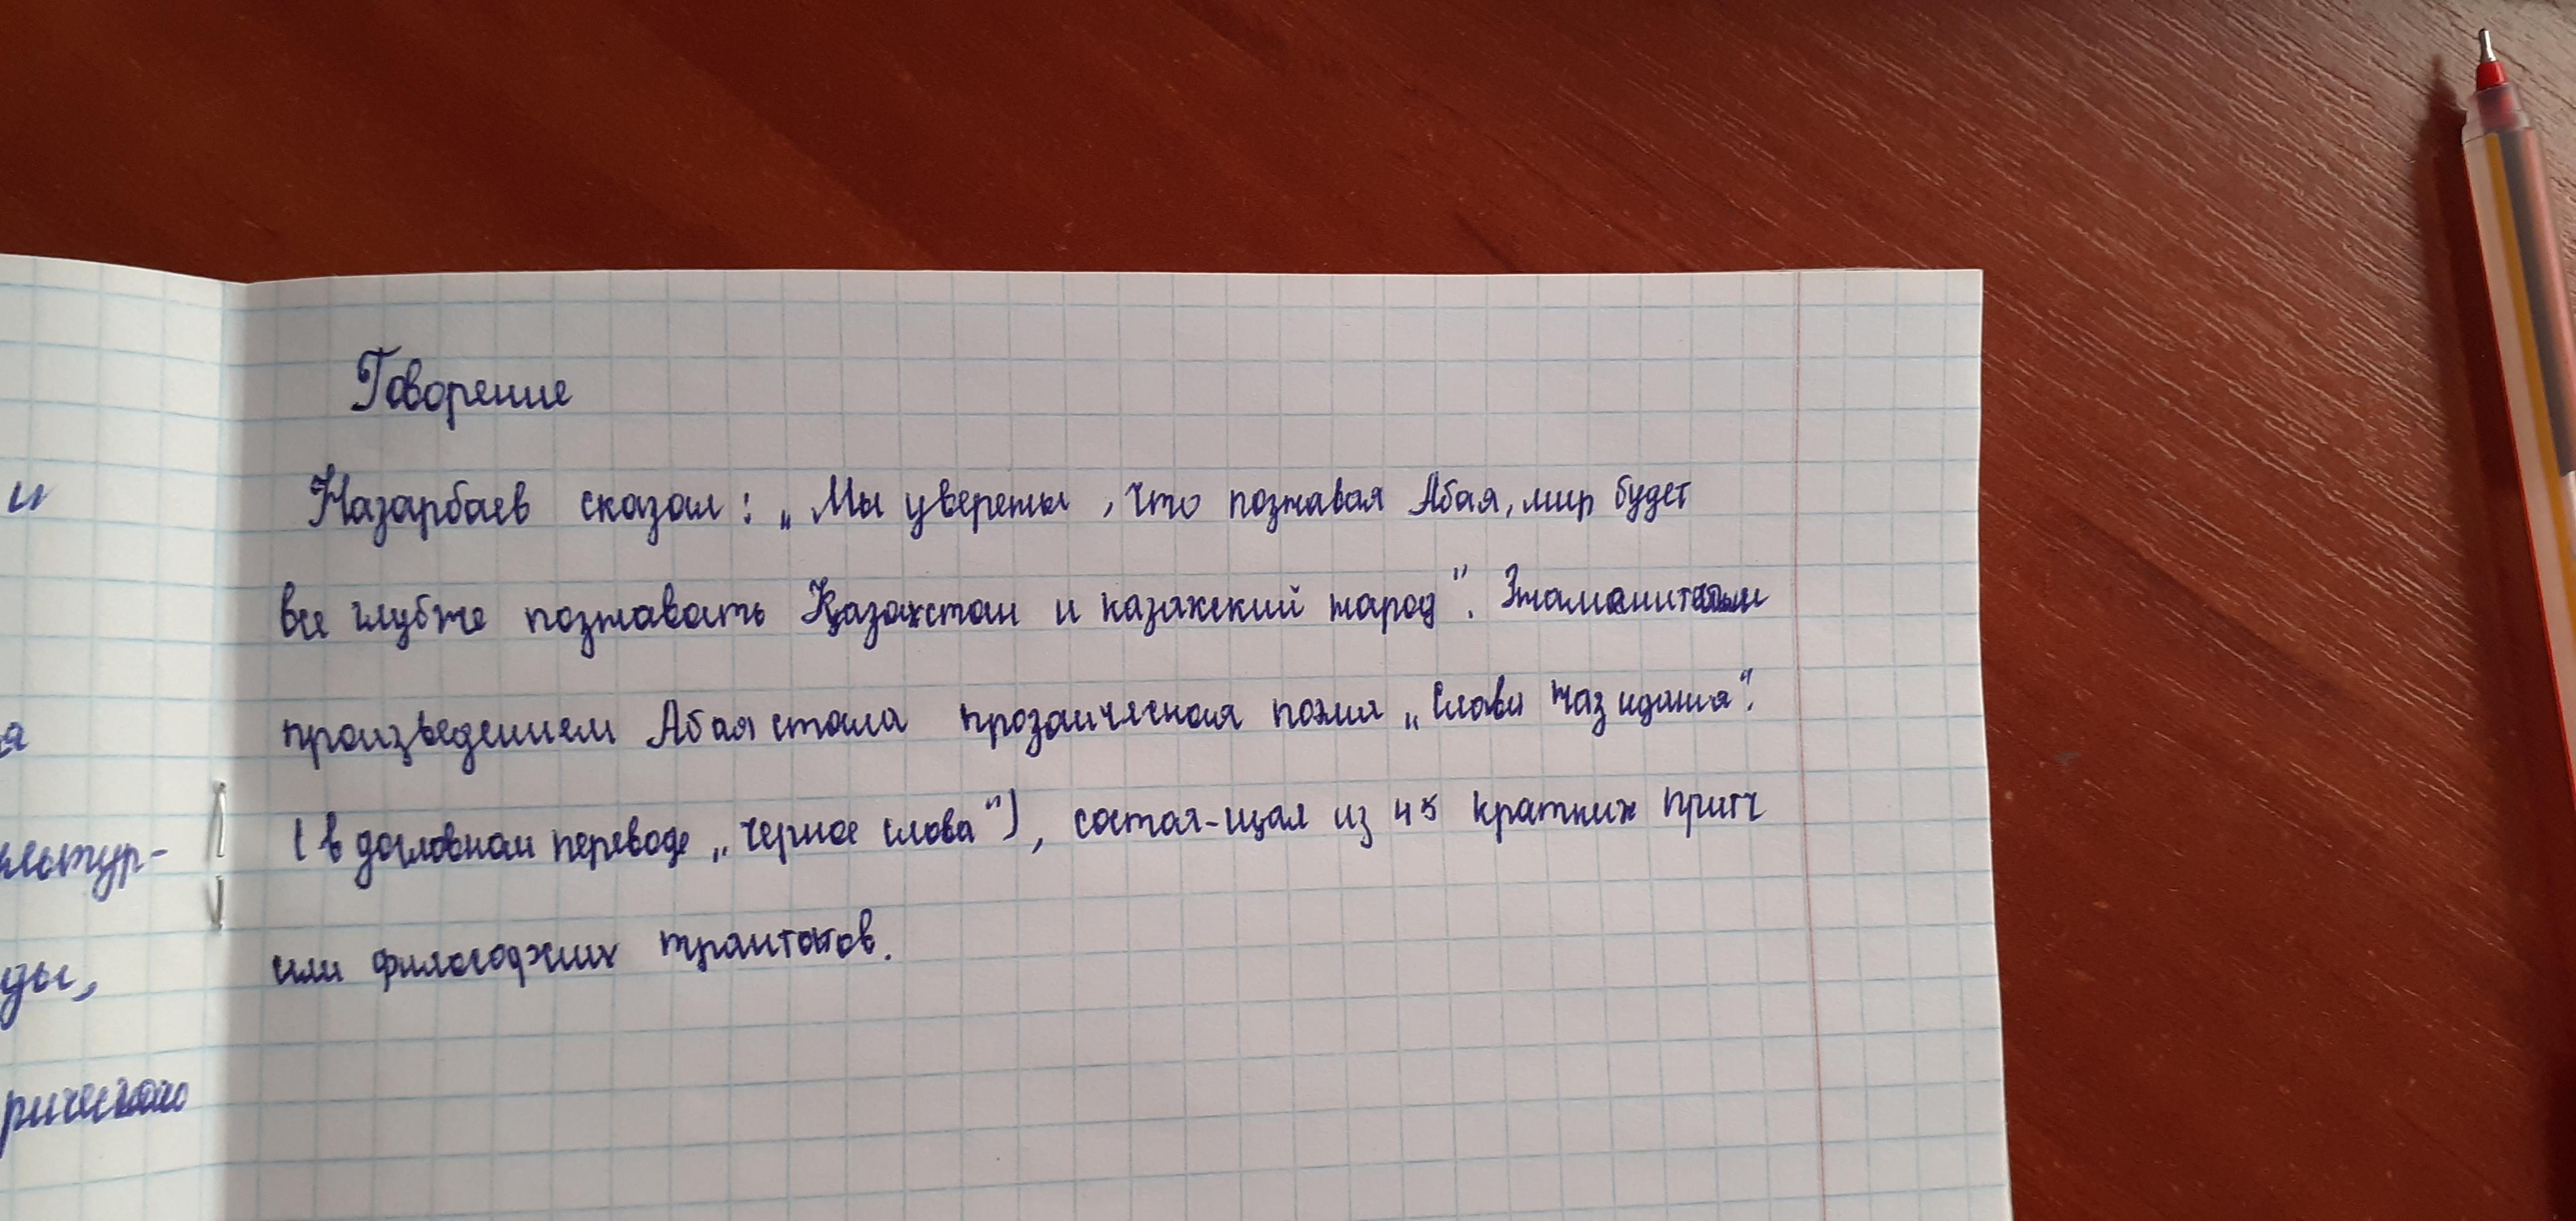 Говорение
и
Назарбаев сказал: „Мы уверены, что познавая Абая, мир будет
все глубже познавать Қазахстан и казахский народ". Знаменитым
произведением Абая стала прозаическая поэма „Слова назидания".
я
(в дословном переводе „Черное слова"), состоя-щая из 45 кратких притч
культур-
или философских трактатов.
ды,
рического